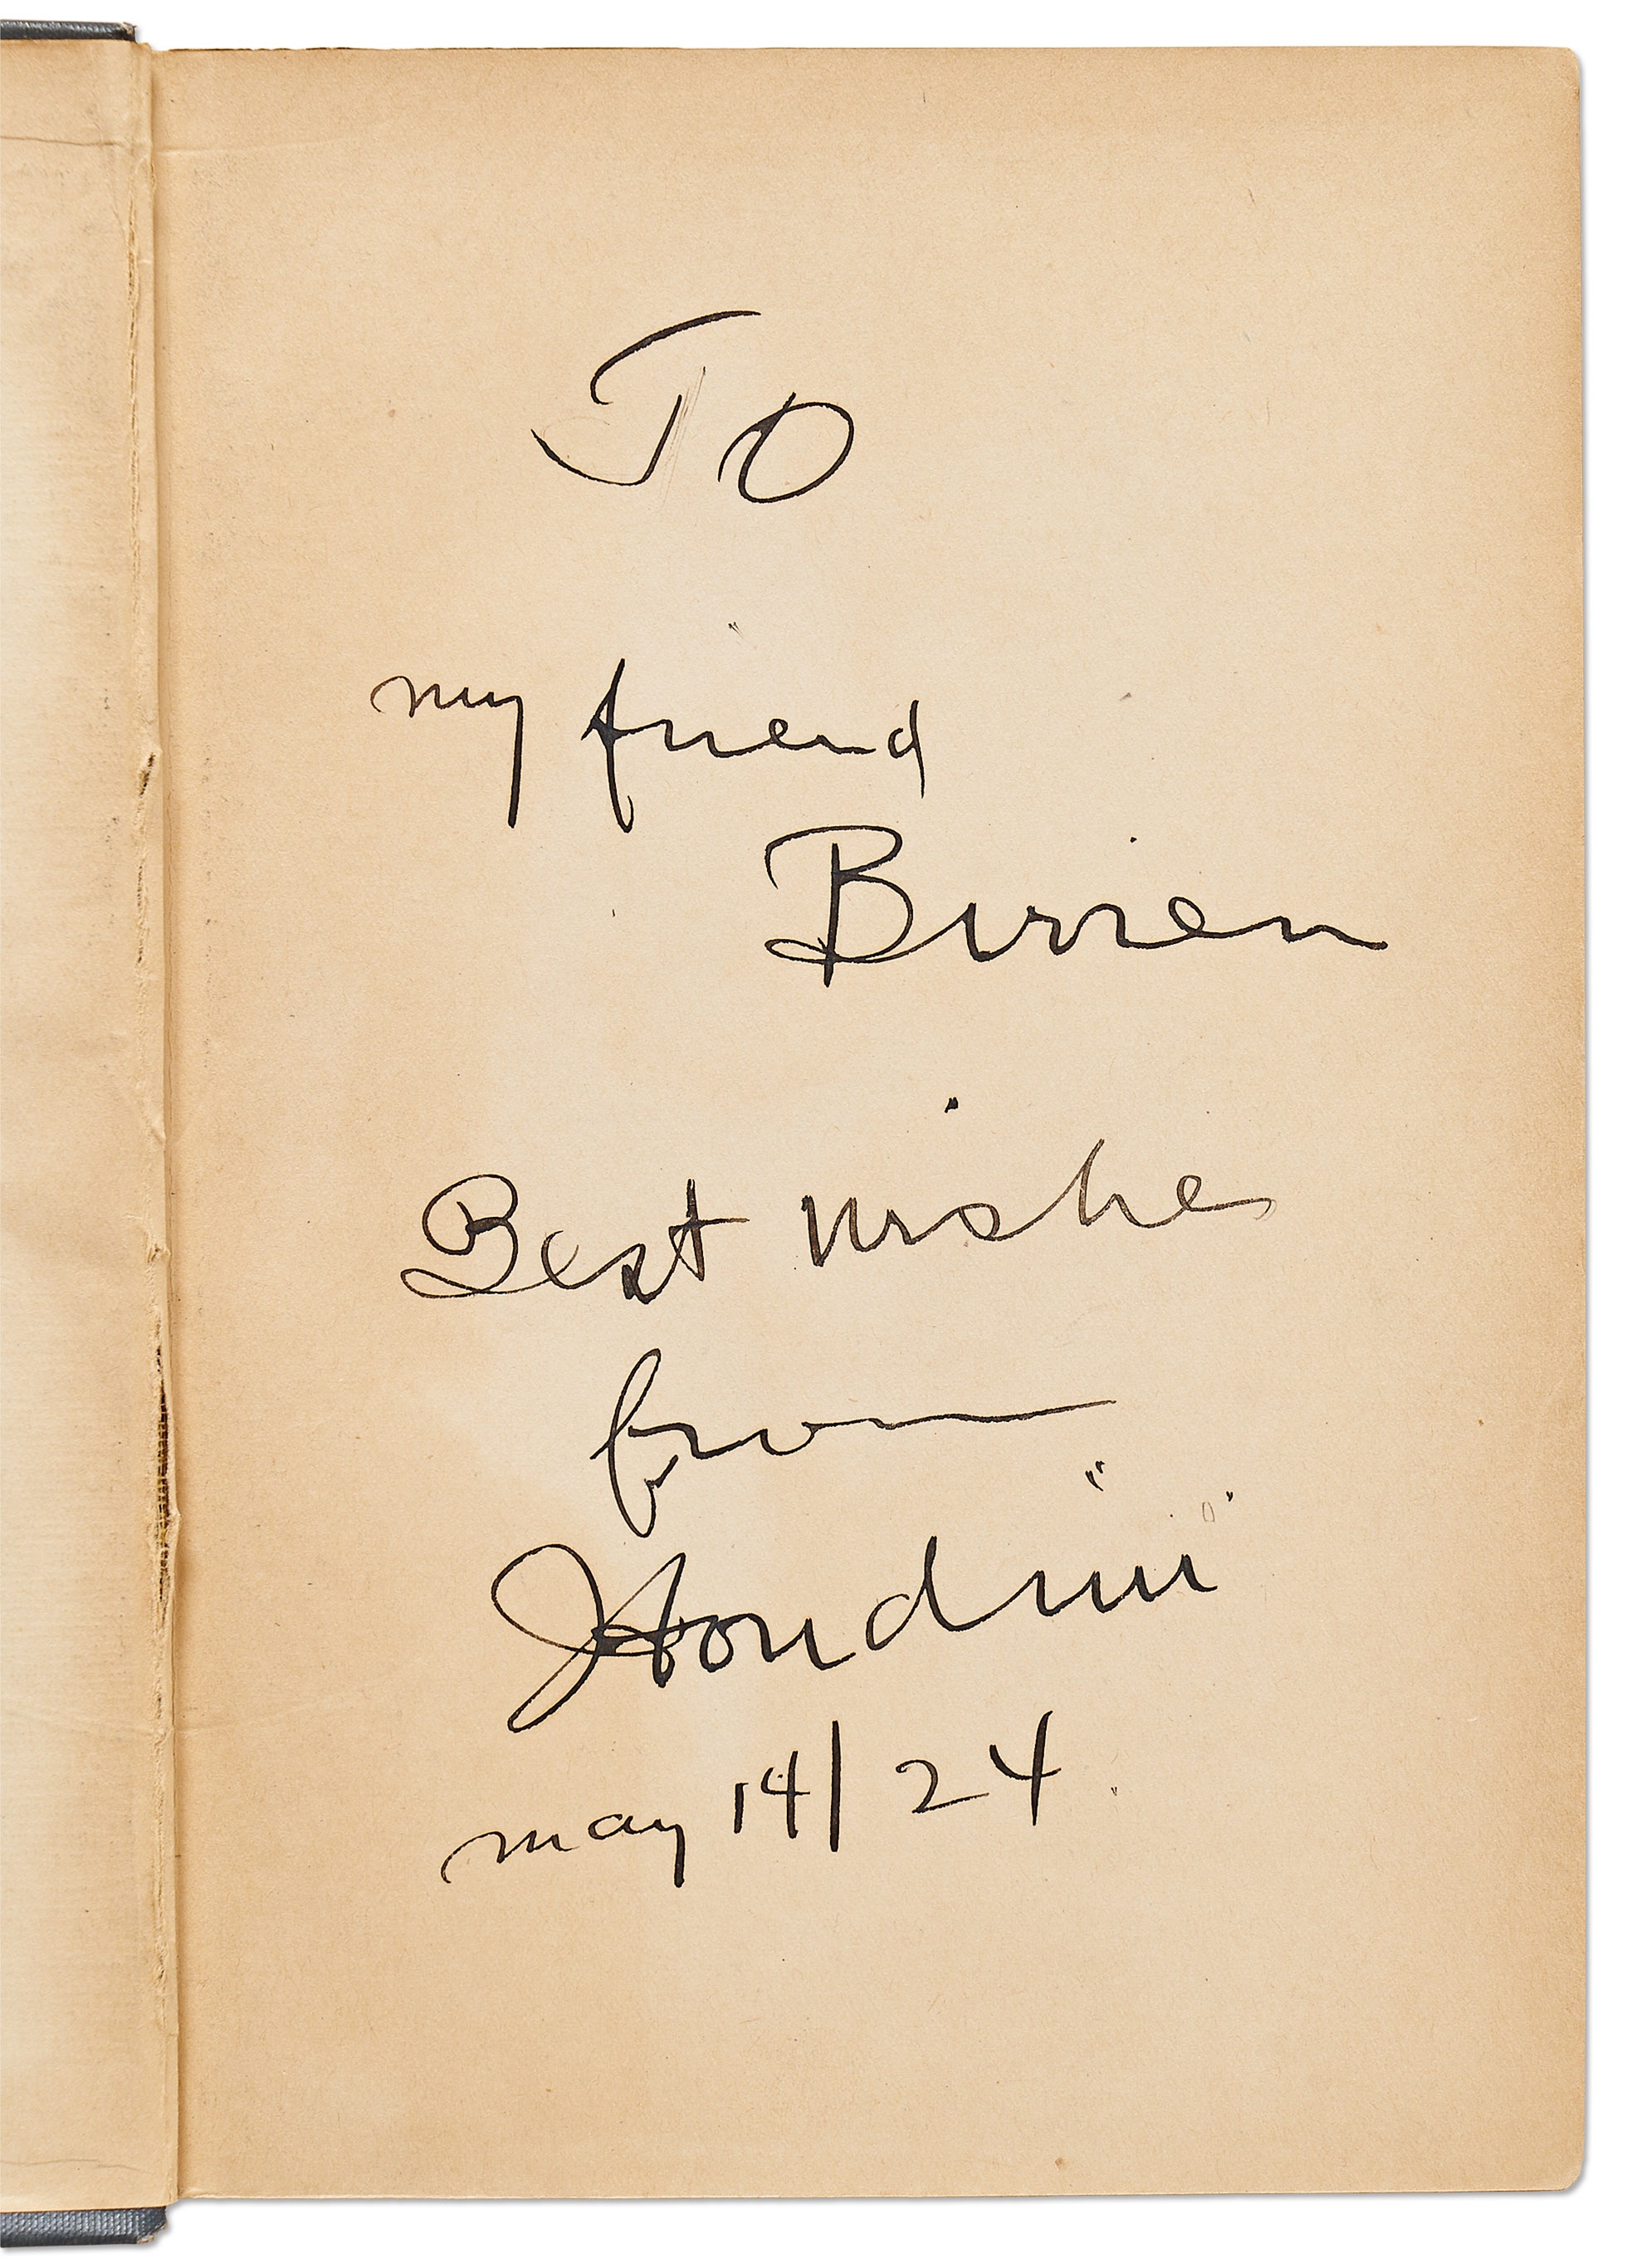 To
my friend
Birren
Best wishes
from
Houdini
may 14/24.